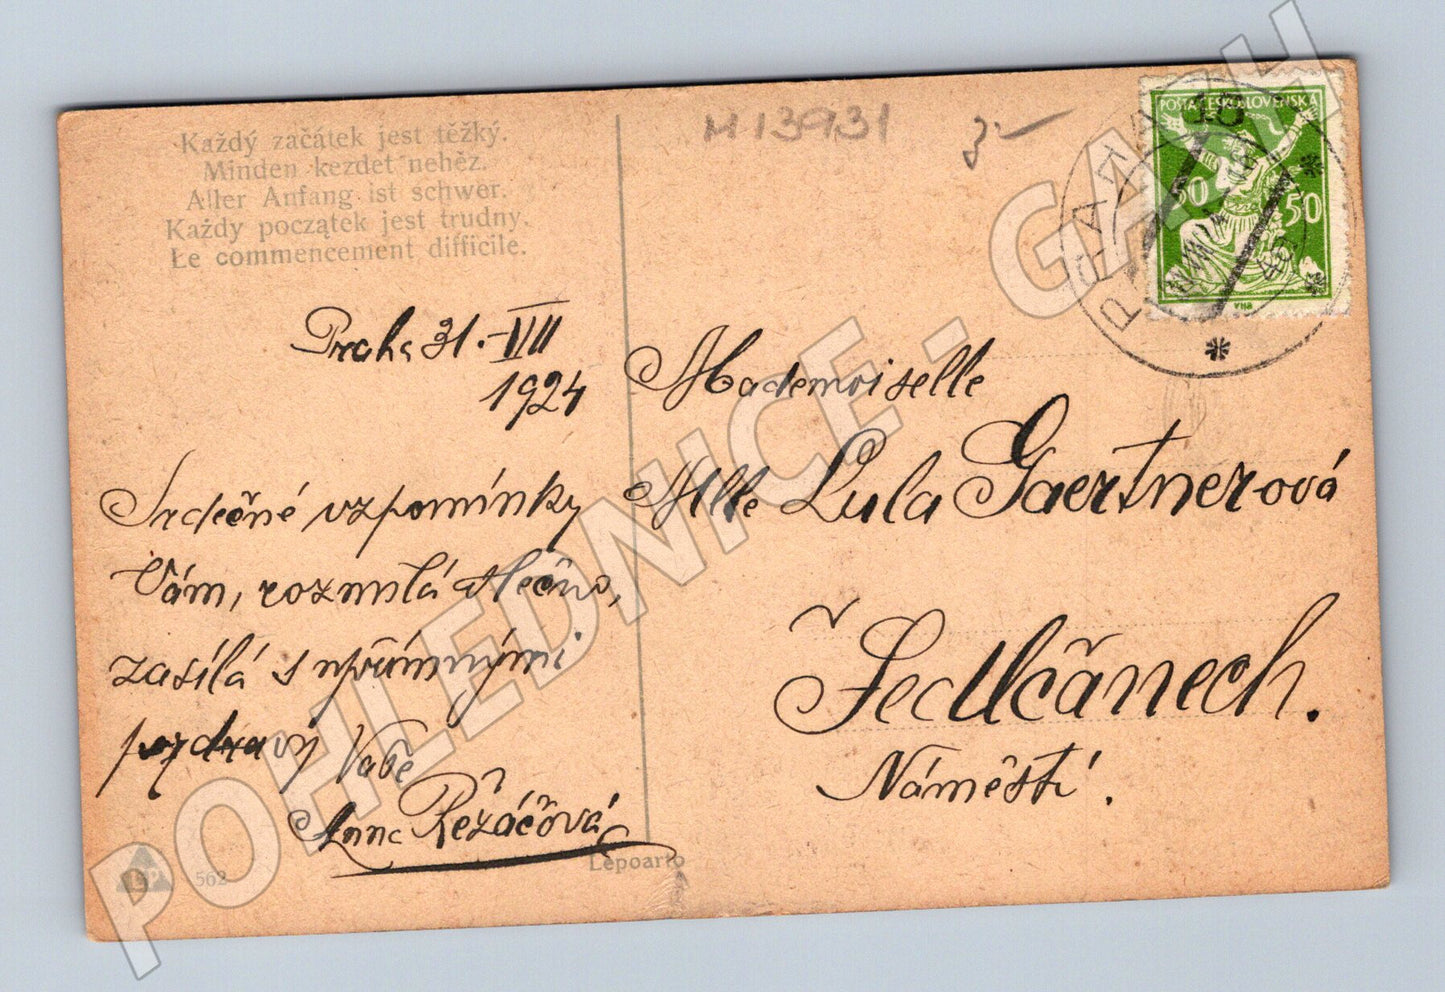 Každý začátek jest těžký.
Minden kezdet nehéz.
Aller Anfang ist schwer.
Każdy początek jest trudny.
Le commencement difficile.
M 13931
POŠTA ČESKOSLOVENSKÁ
50 50
PRAHA
Praha 31.-VII
1924
Srdečné vzpomínky
Vám, rozmilá slečno,
zasílá s upřímnými
pozdravy Vaše
Anna Řezáčová
Mademoiselle
Mlle Lula Gaertnerová
Sedlčanech.
Náměstí.
562
Lepoarto
POHLEDNICE - GALY.H